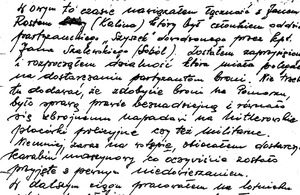 W owym to czasie nawiązałem łączność z Janem
Rostem (Kalina), który był członkiem oddziału
partyzanckiego Szyszek dowodzonego przez kpt.
Jana Szalewskiego "Soból". Zostałem zaprzysiężony
i rozpocząłem działalność która miała polegać
na dostarczaniu partyzantom broni. Nie trzeba
tu dodawać, że zdobycie broni na Pomorzu,
było sprawą prawie beznadziejną i równało
się zbrojnemu napadowi na hitlerowskie
placówki policyjne czy też militarne.
Niemniej, zaraz na wstępie, obiecałem dostarczyć
karabin maszynowy co oczywiście zostało
przyjęte z pewnym niedowierzaniem.
W dalszym ciągu pracowałem na lotnisku